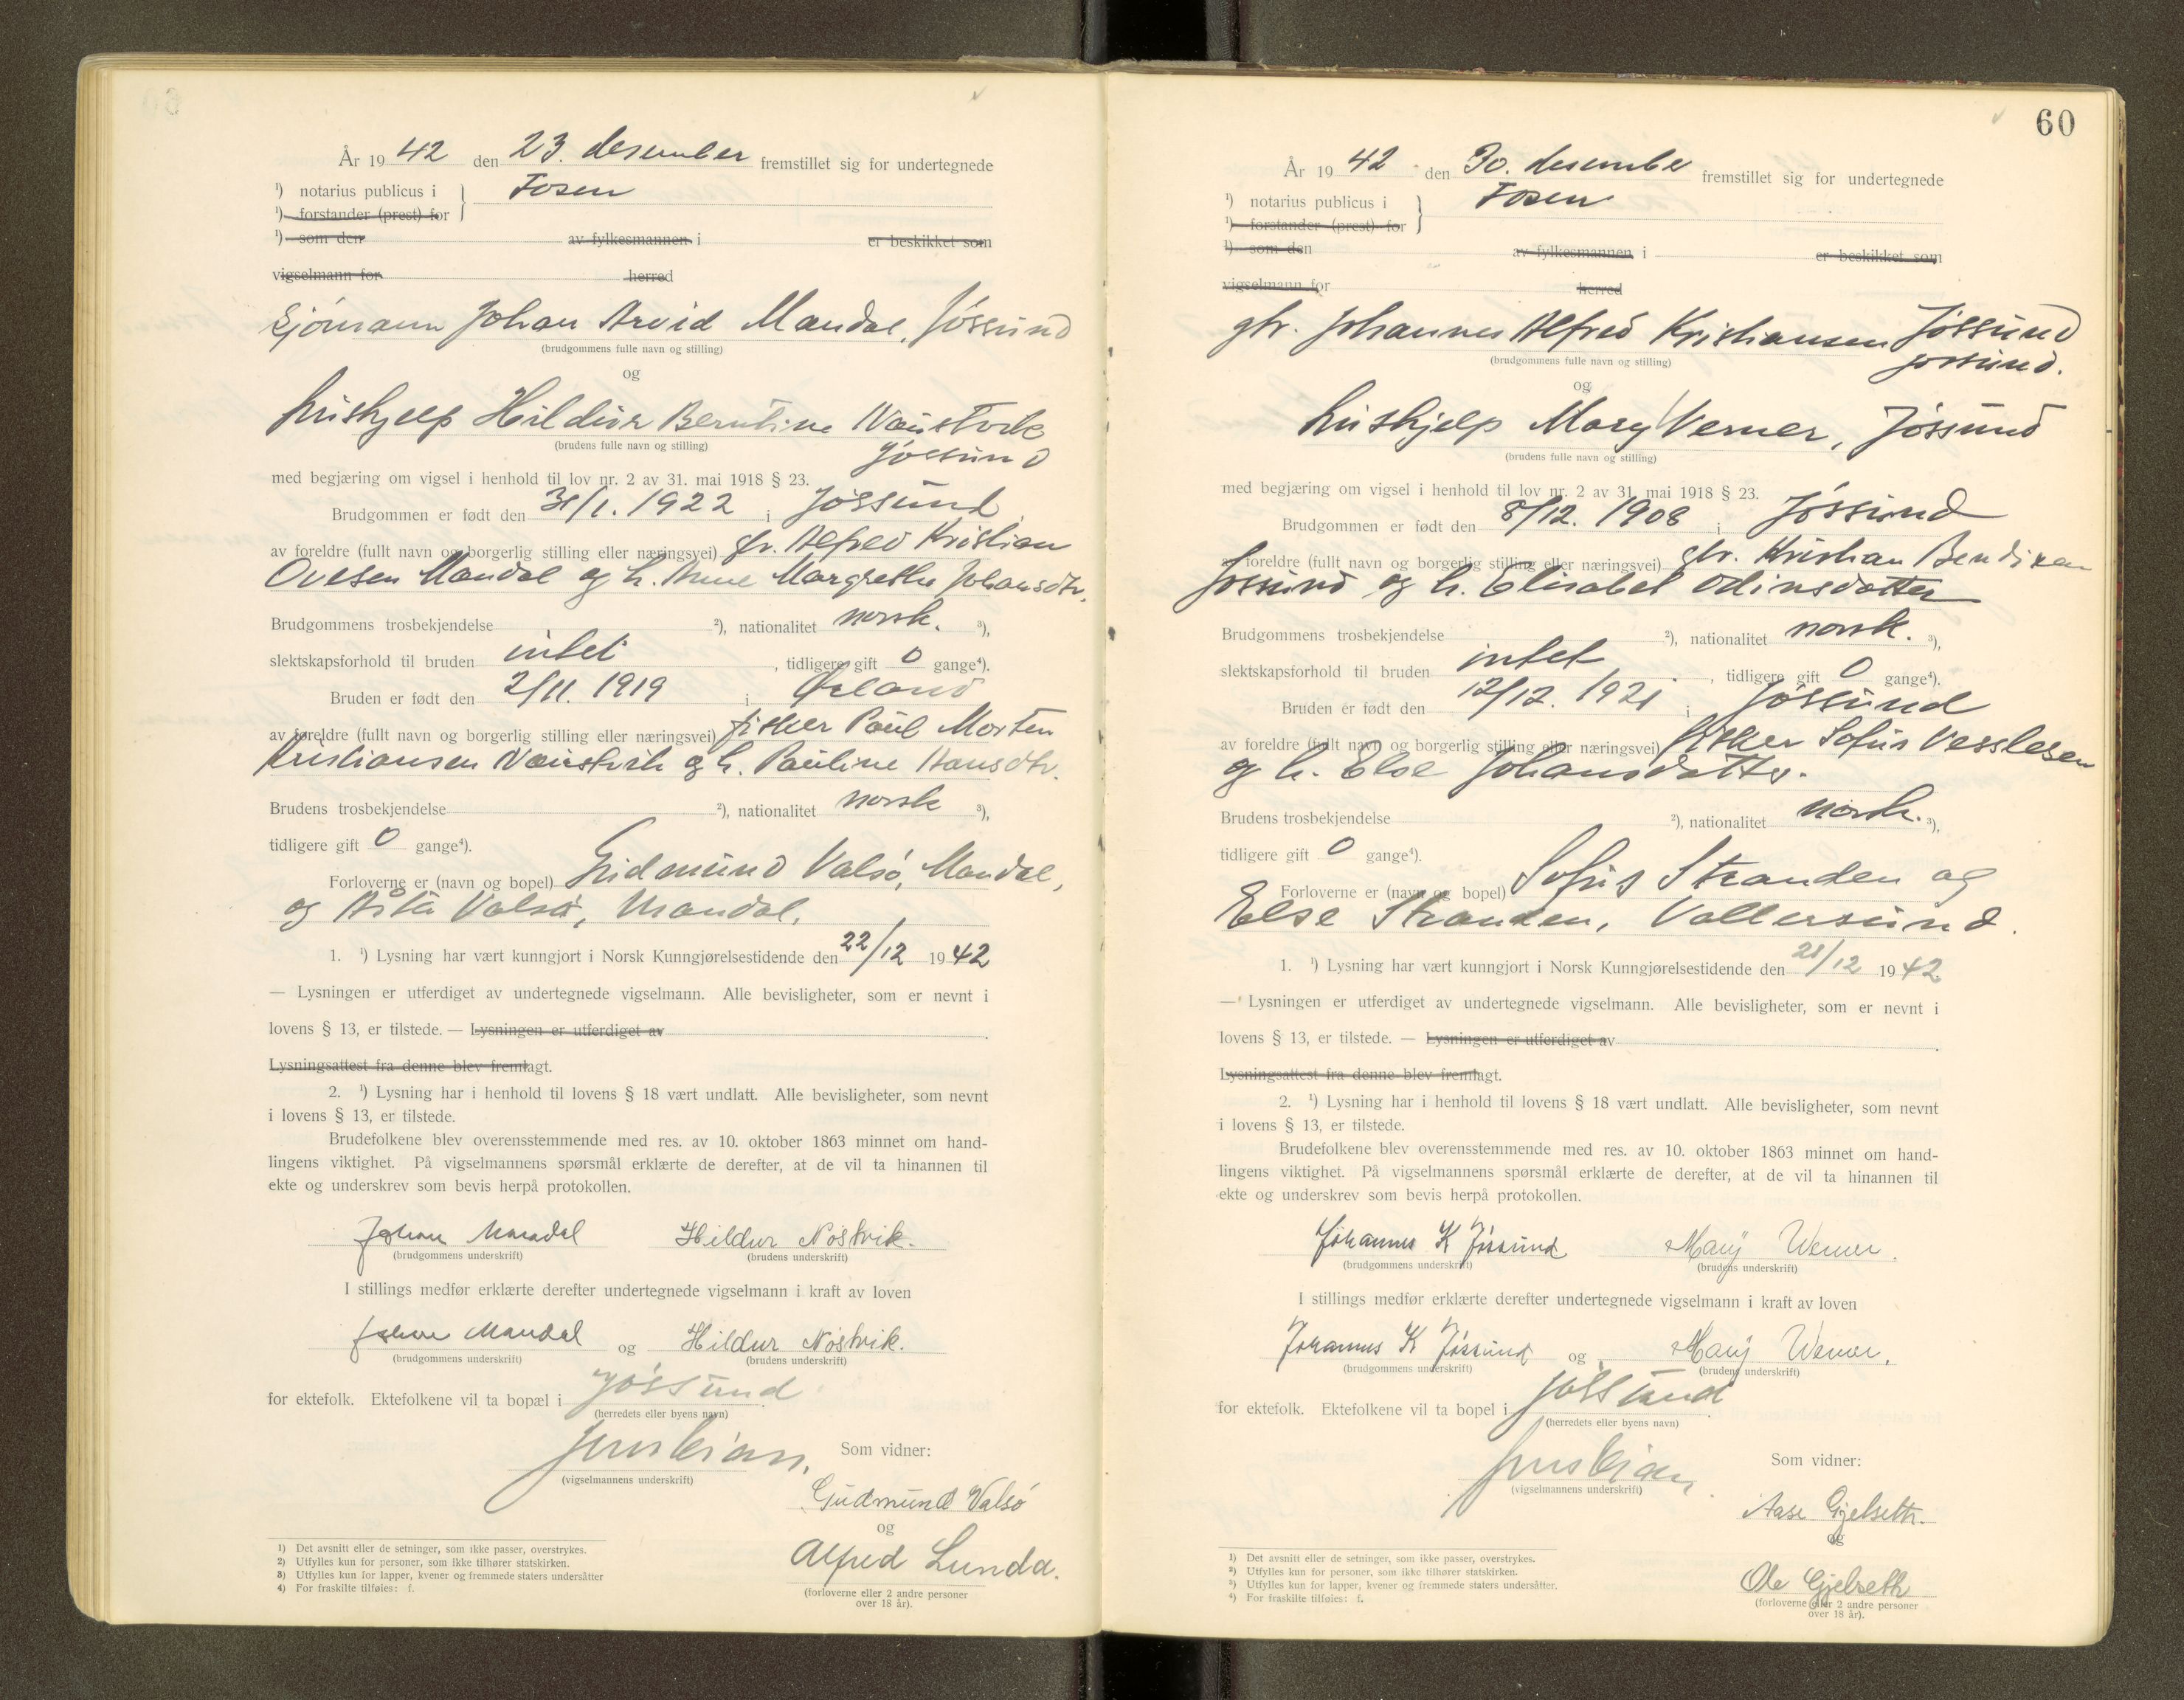 År 19 42 den 23. desember fremstillet sig for undertegnede
¹) notarius publicus i } Fosen
¹) forstander (prest) for
¹) som den av fylkesmannen i er beskikket som
vigselmann for herred
Sjømann Johan Arvid Mandal, Jøssund
(brudgommens fulle navn og stilling)
og
hushjelp Hildur Berntine Naustvik
(brudens fulle navn og stilling)
Jøssund
med begjæring om vigsel i henhold til lov nr. 2 av 31. mai 1918 § 23.
Brudgommen er født den 31/1. 1922 i Jøssund
av foreldre (fullt navn og borgerlig stilling eller næringsvei) gbr. Alfred Kristian
Ovesen Mandal og h. Anne Margrethe Johansdtr.
Brudgommens trosbekjendelse ²), nationalitet norsk. ³),
slektskapsforhold til bruden intet , tidligere gift 0 gange⁴).
Bruden er født den 2/11. 1919 i Ørland
av foreldre (fullt navn og borgerlig stilling eller næringsvei) fisker Paul Morten
Kristiansen Naustvik og h. Pauline Hansdtr.
Brudens trosbekjendelse ²), nationalitet norsk ³),
tidligere gift 0 gange⁴).
Forloverne er (navn og bopel) Gudmund Valsø, Mandal,
og Åsta Valsø, Mandal.
1. ¹) Lysning har vært kunngjort i Norsk Kunngjørelsestidende den 22/12 19 42
— Lysningen er utferdiget av undertegnede vigselmann. Alle bevisligheter, som er nevnt i
lovens § 13, er tilstede. — Lysningen er utferdiget av .
Lysningsattest fra denne blev fremlagt.
2. ¹) Lysning har i henhold til lovens § 18 vært undlatt. Alle bevisligheter, som nevnt
i lovens § 13, er tilstede.
Brudefolkene blev overensstemmende med res. av 10. oktober 1863 minnet om hand-
lingens viktighet. På vigselmannens spørsmål erklærte de derefter, at de vil ta hinannen til
ekte og underskrev som bevis herpå protokollen.
Johan Mandal Hildur Nøstvik.
(brudgommens underskrift) (brudens underskrift)
I stillings medfør erklærte derefter undertegnede vigselmann i kraft av loven
Johan Mandal og Hildur Nøstvik.
(brudgommens underskrift) (brudens underskrift)
for ektefolk. Ektefolkene vil ta bopæl i Jøssund
(herredets eller byens navn)
Som vidner:
(vigselmannens underskrift)
Gudmund Valsø
og
Alfred Lunda.
(forloverne eller 2 andre personer
over 18 år).
1) Det avsnitt eller de setninger, som ikke passer, overstrykes.
2) Utfylles kun for personer, som ikke tilhører statskirken.
3) Utfylles kun for lapper, kvener og fremmede staters undersåtter
4) For fraskilte tilføies: f.
60
År 19 42 den 30. desember fremstillet sig for undertegnede
¹) notarius publicus i } Fosen
¹) forstander (prest) for
¹) som den av fylkesmannen i er beskikket som
vigselmann for herred
gbr. Johannes Alfred Kristiansen Jøssund
Jøssund.
(brudgommens fulle navn og stilling)
og
hushjelp Mary Verner, Jøssund
(brudens fulle navn og stilling)
med begjæring om vigsel i henhold til lov nr. 2 av 31. mai 1918 § 23.
Brudgommen er født den 8/12. 1908 i Jøssund
av foreldre (fullt navn og borgerlig stilling eller næringsvei) gbr. Kristian Bendixen
Jøssund og h. Elisabet Odinsdatter
Brudgommens trosbekjendelse ²), nationalitet norsk. ³),
slektskapsforhold til bruden intet , tidligere gift 0 gange⁴).
Bruden er født den 12/12. 1921 i Jøssund
av foreldre (fullt navn og borgerlig stilling eller næringsvei) fisker Sofus Vesslesen
og h. Else Johansdatter.
Brudens trosbekjendelse ²), nationalitet norsk. ³),
tidligere gift 0 gange⁴).
Forloverne er (navn og bopel) Sofus Stranden og
Else Stranden, Vallersund.
1. ¹) Lysning har vært kunngjort i Norsk Kunngjørelsestidende den 21/12 19 42
— Lysningen er utferdiget av undertegnede vigselmann. Alle bevisligheter, som er nevnt i
lovens § 13, er tilstede. — Lysningen er utferdiget av .
Lysningsattest fra denne blev fremlagt.
2. ¹) Lysning har i henhold til lovens § 18 vært undlatt. Alle bevisligheter, som nevnt
i lovens § 13, er tilstede.
Brudefolkene blev overensstemmende med res. av 10. oktober 1863 minnet om hand-
lingens viktighet. På vigselmannens spørsmål erklærte de derefter, at de vil ta hinannen til
ekte og underskrev som bevis herpå protokollen.
Johannes K Jøssund Mary Werner.
(brudgommens underskrift) (brudens underskrift)
I stillings medfør erklærte derefter undertegnede vigselmann i kraft av loven
Johannes K Jøssund og Mary Werner.
(brudgommens underskrift) (brudens underskrift)
for ektefolk. Ektefolkene vil ta bopel i Jøssund
(herredets eller byens navn)
Som vidner:
(vigselmannens underskrift)
Aase Gjelseth.
og
Ole Gjelseth
(forloverne eller 2 andre personer
over 18 år).
¹) Det avsnitt eller de setninger, som ikke passer, overstrykes.
²) Utfylles kun for personer, som ikke tilhører statskirken.
³) Utfylles kun for lapper, kvener og fremmede staters undersåtter.
⁴) For fraskilte tilføies: f.